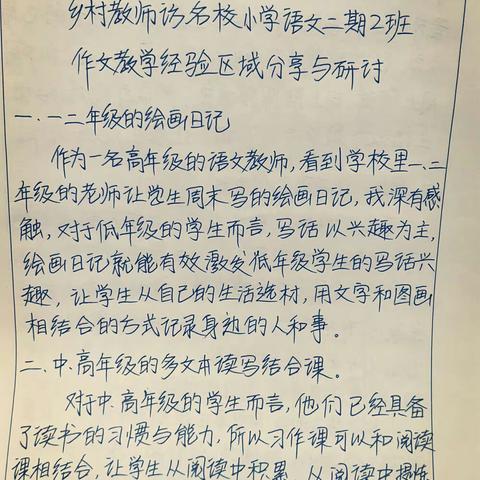 乡村教师访名校小学语文二期2班
作文教学经验区域分享与研讨
一、一二年级的绘画日记
作为一名高年级的语文教师,看到学校里一、二
年级的老师让学生周末写的绘画日记,我深有感
触,对于低年级的学生而言,写话以兴趣为主,
绘画日记就能有效激发低年级学生的写话兴
趣,让学生从自己的生活选材,用文字和图画
相结合的方式记录身边的人和事。
二、中、高年级的多文本读写结合课。
对于中、高年级的学生而言,他们已经具备
了读书的习惯与能力,所以习作课可以和阅读
课相结合,让学生从阅读中积累,从阅读中提炼